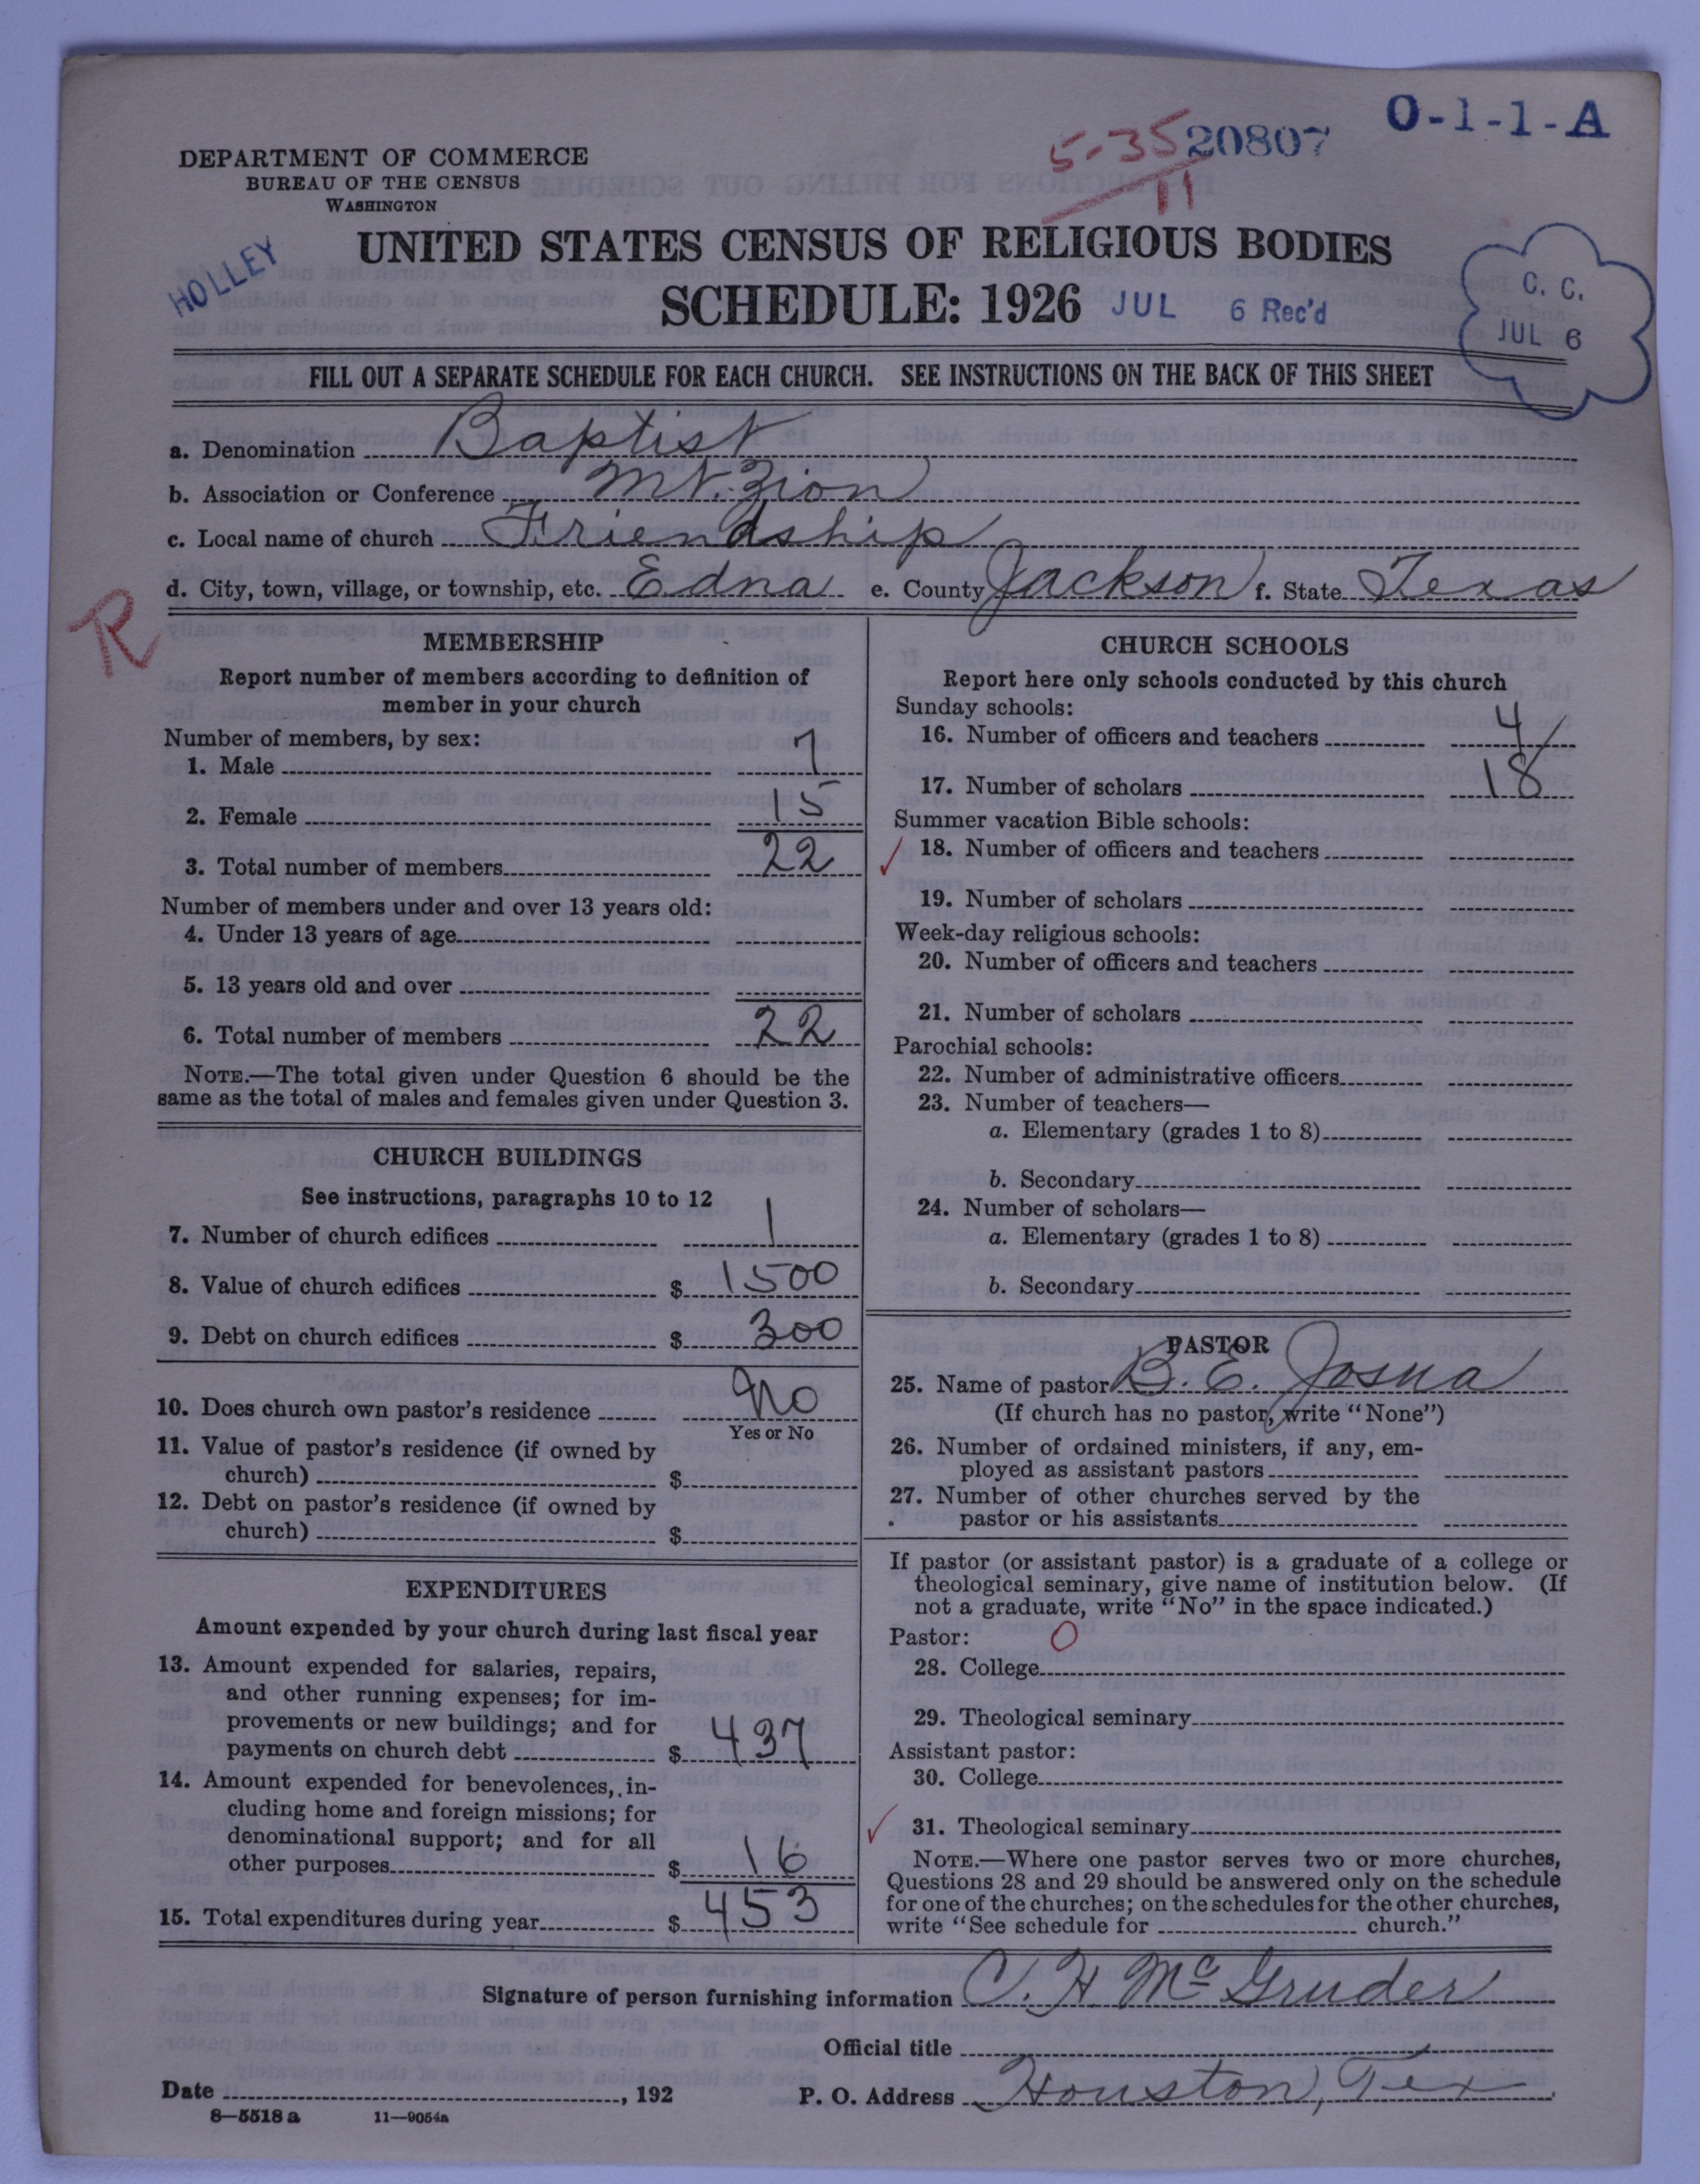 O-1-1-A
5-35 20807
11
DEPARTMENT OF COMMERCE
BUREAU OF THE CENSUS
WASHINGTON
HOLLEY
UNITED STATES CENSUS OF RELIGIOUS BODIES
SCHEDULE: 1926 JUL 6 Rec'd
C. C.
JUL 6
FILL OUT A SEPARATE SCHEDULE FOR EACH CHURCH. SEE INSTRUCTIONS ON THE BACK OF THIS SHEET
a. Denomination Baptist
b. Association or Conference Mt. Zion
c. Local name of church Friendship
d. City, town, village, or township, etc. Edna e. County Jackson f. State Texas
R
MEMBERSHIP
Report number of members according to definition of
member in your church
Number of members, by sex:
1. Male 7
2. Female 15
3. Total number of members 22
Number of members under and over 13 years old:
4. Under 13 years of age
5. 13 years old and over
6. Total number of members 22
NOTE.—The total given under Question 6 should be the
same as the total of males and females given under Question 3.
CHURCH BUILDINGS
See instructions, paragraphs 10 to 12
7. Number of church edifices 1
8. Value of church edifices $ 1500
9. Debt on church edifices $ 300
10. Does church own pastor's residence No
Yes or No
11. Value of pastor's residence (if owned by
church) $
12. Debt on pastor's residence (if owned by
church) $
EXPENDITURES
Amount expended by your church during last fiscal year
13. Amount expended for salaries, repairs,
and other running expenses; for im-
provements or new buildings; and for
payments on church debt $ 437
14. Amount expended for benevolences, in-
cluding home and foreign missions; for
denominational support; and for all
other purposes $ 16
15. Total expenditures during year $ 453
CHURCH SCHOOLS
Report here only schools conducted by this church
Sunday schools:
16. Number of officers and teachers 4
17. Number of scholars 18
Summer vacation Bible schools:
18. Number of officers and teachers
19. Number of scholars
Week-day religious schools:
20. Number of officers and teachers
21. Number of scholars
Parochial schools:
22. Number of administrative officers
23. Number of teachers—
a. Elementary (grades 1 to 8)
b. Secondary
24. Number of scholars—
a. Elementary (grades 1 to 8)
b. Secondary
PASTOR
25. Name of pastor B. E. Josua
(If church has no pastor, write "None")
26. Number of ordained ministers, if any, em-
ployed as assistant pastors
27. Number of other churches served by the
pastor or his assistants
If pastor (or assistant pastor) is a graduate of a college or
theological seminary, give name of institution below. (If
not a graduate, write "No" in the space indicated.)
Pastor: O
28. College
29. Theological seminary
Assistant pastor:
30. College
31. Theological seminary
NOTE.—Where one pastor serves two or more churches,
Questions 28 and 29 should be answered only on the schedule
for one of the churches; on the schedules for the other churches,
write "See schedule for church."
Signature of person furnishing information C. H. McGruder
Official title
Date , 192 P. O. Address Houston, Tex
8—5518 a 11—9054a